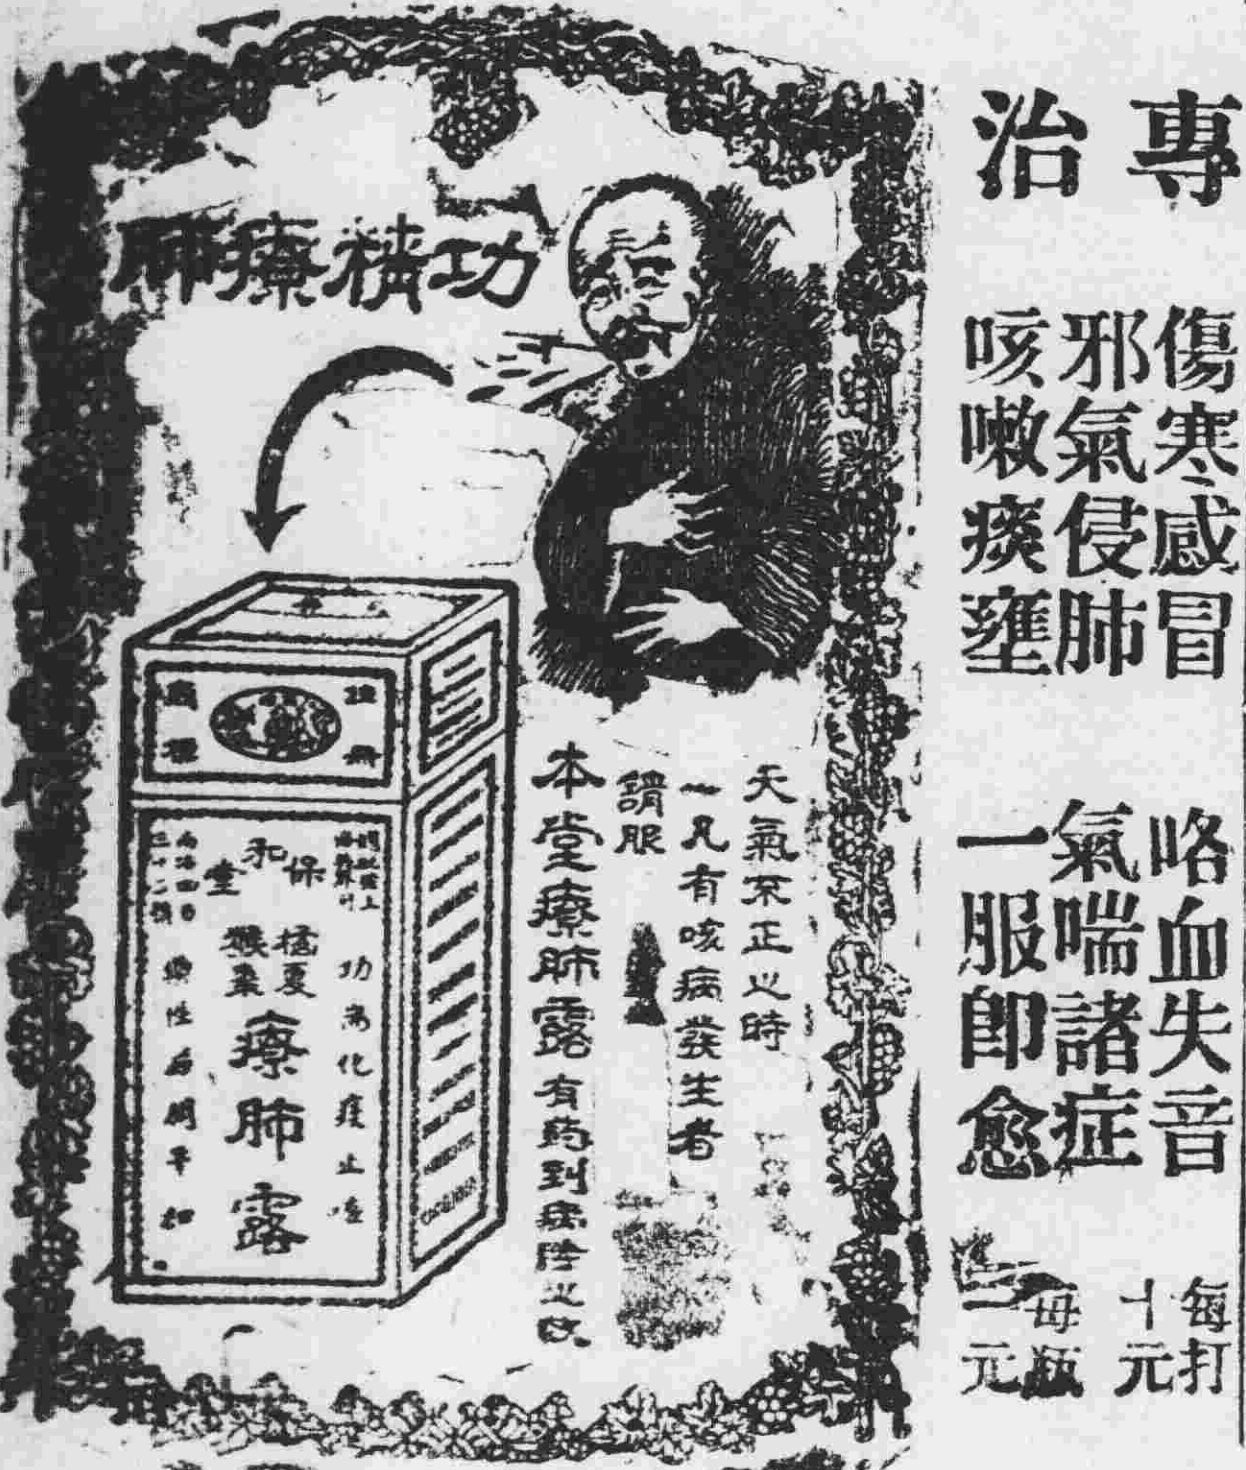 專治
傷寒感冒
邪氣侵肺
咳嗽痰壅
咯血失音
氣喘諸症
一服即愈
每打
十元
每瓶
一元
功精療肺
天氣不正之時
一凡有咳病發生者
請服
本堂療肺露有药到病除之效
註冊
商標
保和堂
猴棗
療肺露
功高化痰止咳
藥性和平